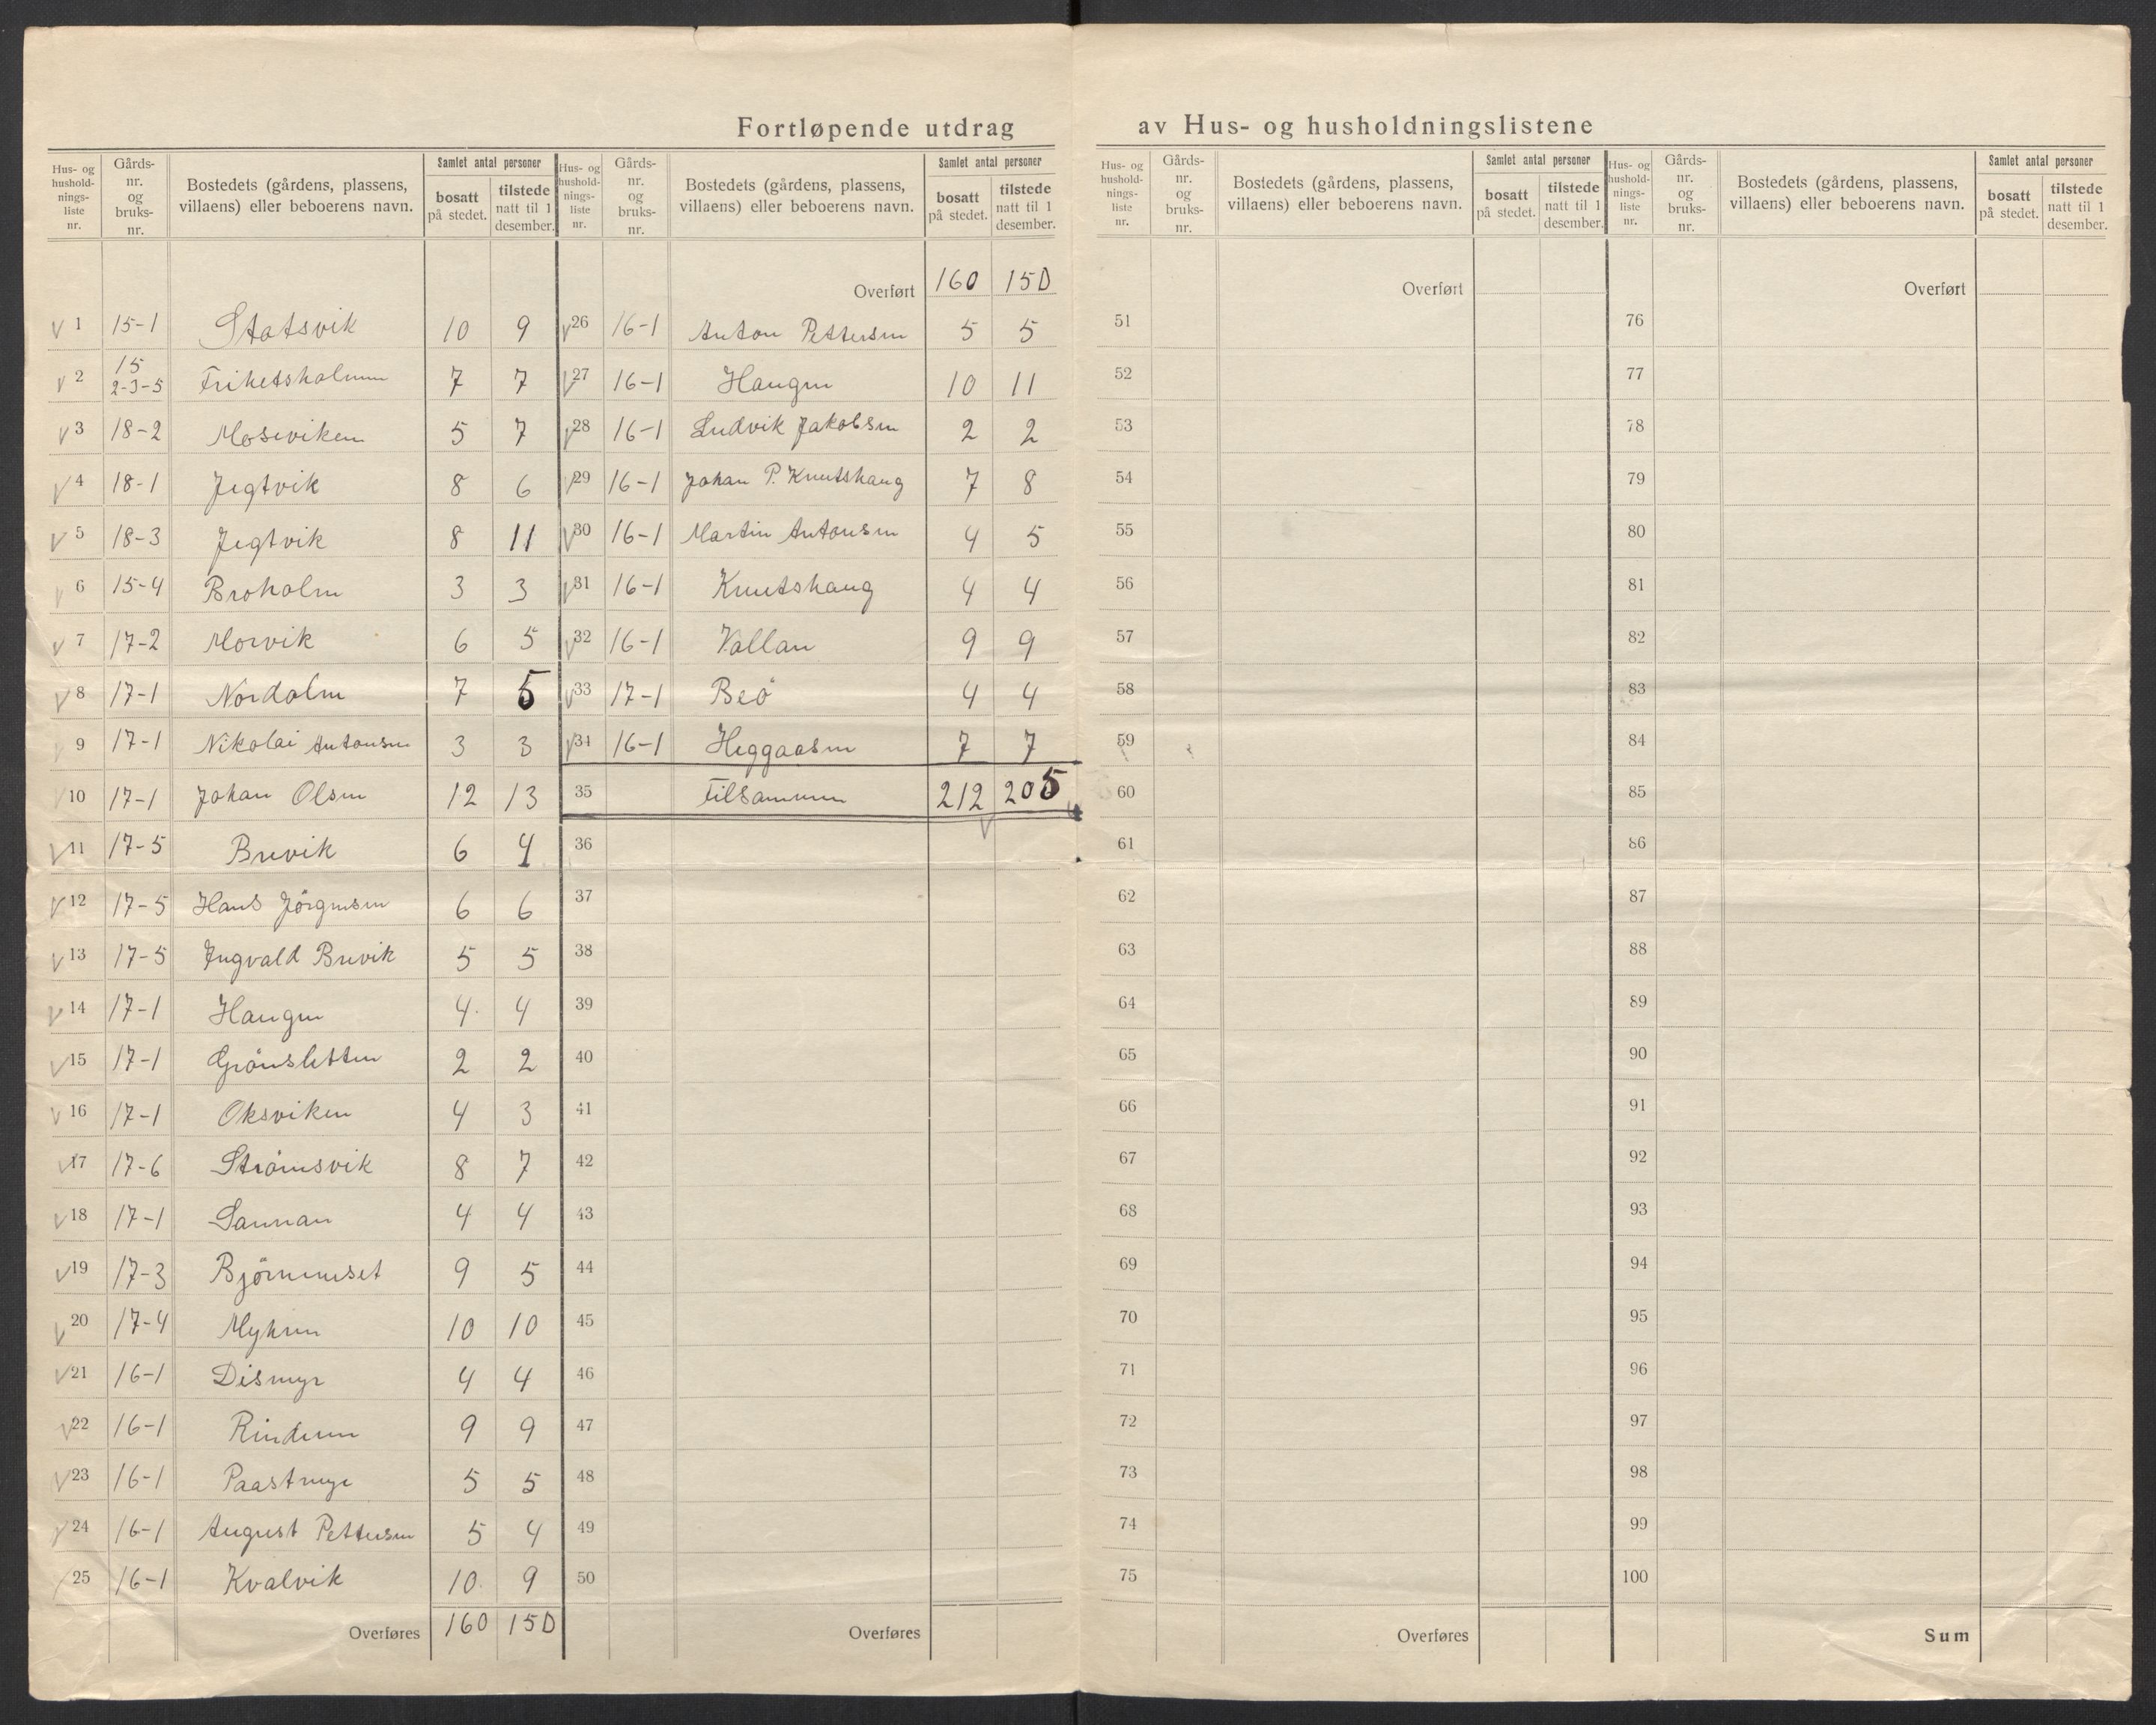 Fortløpende utdrag av Hus- og husholdningslistene
Hus- og husholdnings-liste nr. | Gårds-nr. og bruks-nr. | Bostedets (gårdens, plassens, villaens) eller beboerens navn. | Samlet antal personer | bosatt på stedet. | tilstede natt til 1 desember.
1 15-1 Statsvik 10 9
2 15 2-3-5 Frihetsholmen 7 7
3 18-2 Moseviken 5 7
4 18-1 Jegtvik 8 6
5 18-3 Jegtvik 8 11
6 15-4 Broholm 3 3
7 17-2 Morvik 6 5
8 17-1 Nordalm 7 5
9 17-1 Nikolai Antonsen 3 3
10 17-1 Johan Olsen 12 13
11 17-5 Brevik 6 4
12 17-5 Hans Jörgensen 6 6
13 17-5 Ingvald Brevik 5 5
14 17-1 Haugen 4 4
15 17-1 Grönsletten 2 2
16 17-1 Oksviken 4 3
17 17-6 Strömsvik 8 7
18 17-1 Sannan 4 4
19 17-3 Björnneset 9 5
20 17-4 Myhren 10 10
21 16-1 Dismyr 4 4
22 16-1 Rindenn 9 9
23 16-1 Paastmyr 5 5
24 16-1 August Pettersen 5 4
25 16-1 Kvalvik 10 9
Overføres 160 150
Hus- og husholdnings-liste nr. | Gårds-nr. og bruks-nr. | Bostedets (gårdens, plassens, villaens) eller beboerens navn. | Samlet antal personer | bosatt på stedet. | tilstede natt til 1 desember.
Overført 160 150
26 16-1 Anton Pettersen 5 5
27 16-1 Haugen 10 11
28 16-1 Ludvik Jakobsen 2 2
29 16-1 Johan P. Knutshaug 7 8
30 16-1 Martin Antonsen 4 5
31 16-1 Knutshaug 4 4
32 16-1 Vallan 9 9
33 17-1 Beö 4 4
34 16-1 Heggaasen 7 7
35 Tilsammen 212 205
36
37
38
39
40
41
42
43
44
45
46
47
48
49
50
Overføres
Hus- og husholdnings-liste nr. | Gårds-nr. og bruks-nr. | Bostedets (gårdens, plassens, villaens) eller beboerens navn. | Samlet antal personer | bosatt på stedet. | tilstede natt til 1 desember.
Overført
51
52
53
54
55
56
57
58
59
60
61
62
63
64
65
66
67
68
69
70
71
72
73
74
75
Overføres
Hus- og husholdnings-liste nr. | Gårds-nr. og bruks-nr. | Bostedets (gårdens, plassens, villaens) eller beboerens navn. | Samlet antal personer | bosatt på stedet. | tilstede natt til 1 desember.
Overført
76
77
78
79
80
81
82
83
84
85
86
87
88
89
90
91
92
93
94
95
96
97
98
99
100
Sum